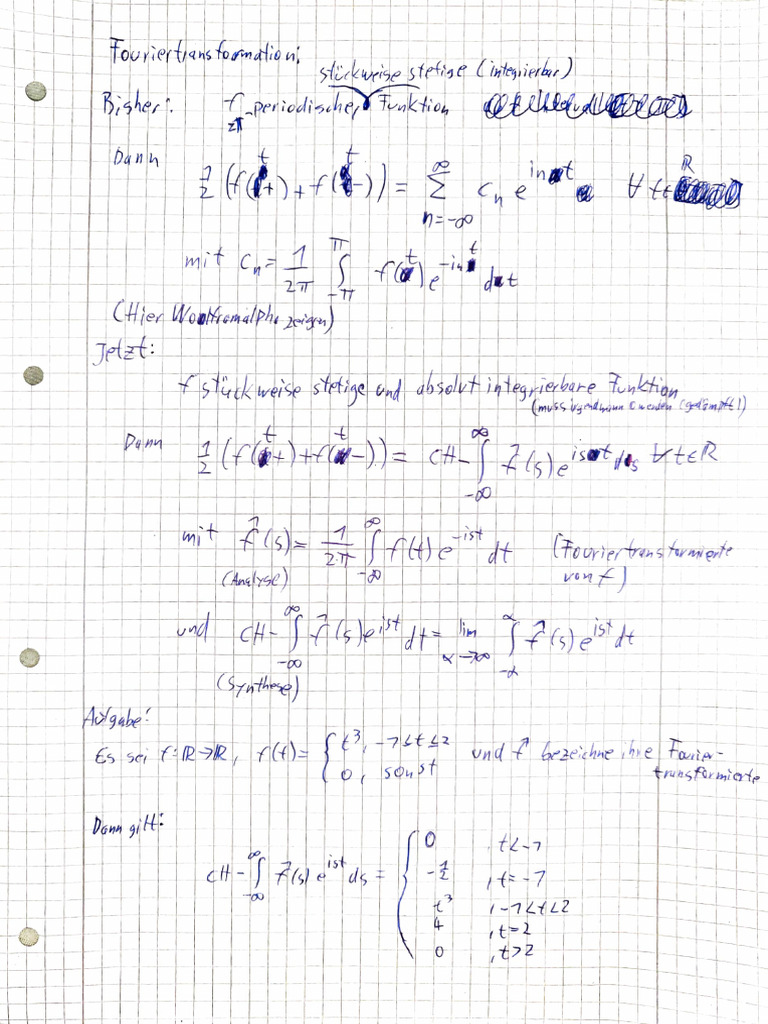 Fouriertransformation:
stückweise stetige (integrierbar)
Bisher: f 2π-periodische, Funktion
Dann 1/2 (f(t+) + f(t-)) = ∑_{n=-∞}^{∞} c_n e^{int} ∀ t∈ℝ
mit c_n = 1/2π ∫_{-π}^{π} f(t) e^{-int} dt
(Hier Woolframalpha zeigen)
Jetzt:
f stückweise stetige und absolut integrierbare Funktion
(muss irgendwann 0 werden (gedämpft!)
Dann 1/2 (f(t+) + f(t-)) = CH-∫_{-∞}^{∞} f̂(s) e^{ist} ds ∀ t∈ℝ
mit f̂(s) = 1/2π ∫_{-∞}^{∞} f(t) e^{-ist} dt (Fouriertransformierte
(Analyse) von f)
und CH-∫_{-∞}^{∞} f̂(s) e^{ist} dt = lim_{α→∞} ∫_{-α}^{α} f̂(s) e^{ist} dt
(Synthese)
Aufgabe:
Es sei f:ℝ→ℝ, f(t) = { t³, -1≤t≤2 und f̂ bezeichne ihre Fourier-
0, sonst transformierte
Dann gilt:
CH-∫_{-∞}^{∞} f̂(s) e^{ist} ds = { 0 , t<-1
-1/2 , t=-1
t³ , -1<t<2
4 , t=2
0 , t>2